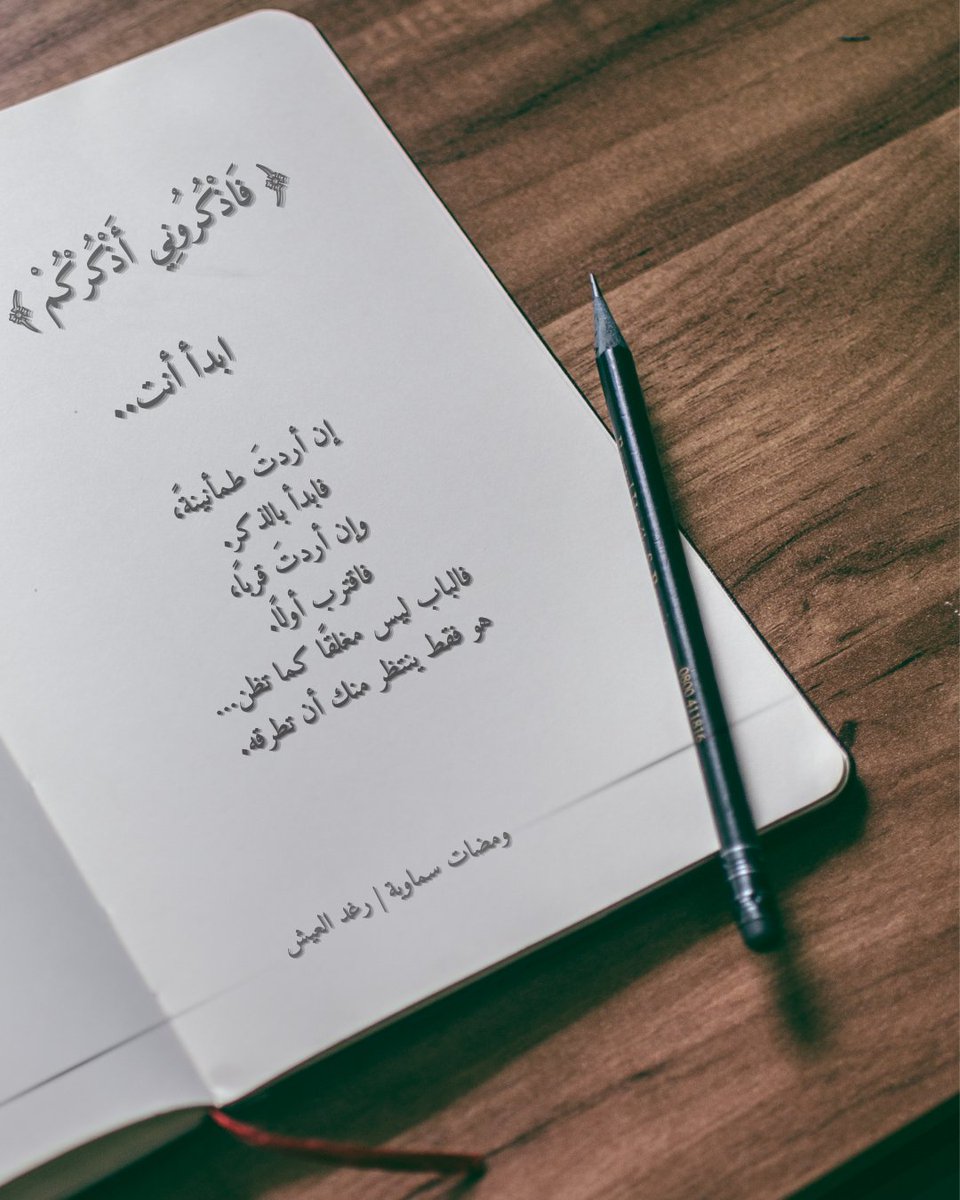 ﴿ فَاذْكُرُونِي أَذْكُرْكُمْ ﴾
ابدأ أنت..
إن أردتَ طمأنينةً،
فابدأ بالذكر.
وإن أردتَ قرباً،
فاقترب أولاً.
فالباب ليس مغلقًا كما تظن...
هو فقط ينتظر منك أن تطرقه.
ومضات سماوية | رغد العيش
0800 411816